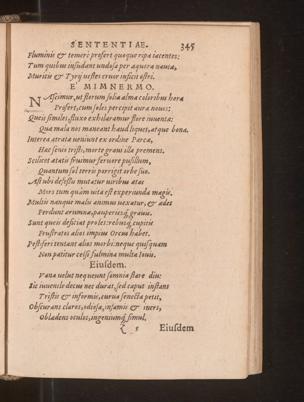 SENTENTIAE. 345
Fluminis & temerè profert quoque ripa iacentes:
Tum quibus insudant undosa per æquora nautæ,
Muricis & Tyrij uestes cruor inficit ostri.
E MIMNERMO.
NAscimur, ut florum folia alma coloribus hora
Profert, cum soles percipit aura nouos:
Queis similes, fluxo exhilaramur flore iuuentæ:
Quæ mala nos maneant haud liquet, atque bona.
Interea atratæ ueniunt ex ordine Parcæ,
Hæc senio tristi, morte graui illa premens.
Scilicet ætatis fruimur feruore pusillum,
Quantum sol terris porrigit orbe suo.
Ast ubi defessus mutatur uiribus ætas
Mors tum quàm uita est experiunda magis.
Multis nanque malis animus uexatur, & ædes
Perdunt ærumnæ, pauperiesque grauis.
Sunt queis deficiat proles: rebusque cupitis
Frustratos alios impius Orcus habet.
Pestiferi tentant alios morbi: neque quisquam
Non patitur celsi fulmina multa Iouis.
Eiusdem.
Vana uelut nequeunt somnia stare diu:
Sic iuuenile decus nec durat, sed caput instans
Tristis & informis, curua senecta petit,
Obscurans claros, odiosa, infamis & iners,
Oblædens oculos, ingeniumque simul.
5 Eiusdem